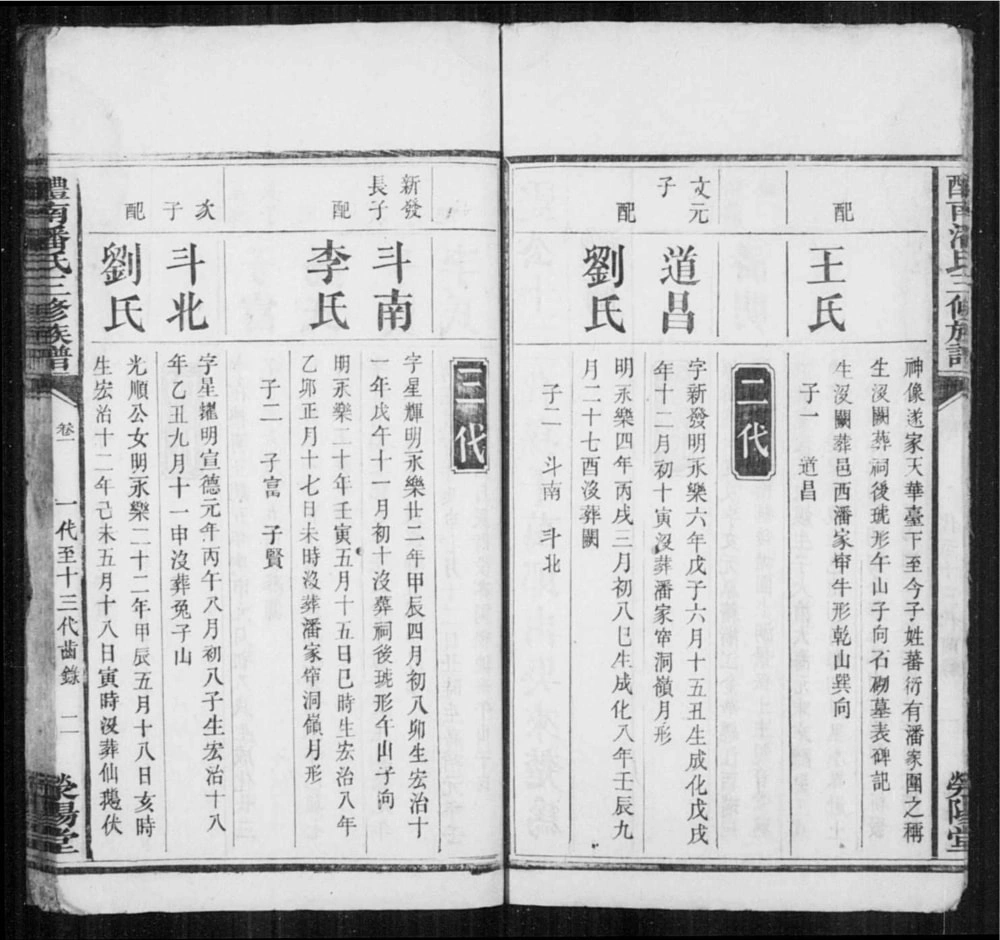 醴南潘氏三修族譜
滎陽堂
神像遂家天華臺下至今子姓蕃衍有潘家團之稱
生沒闕葬祠後琥形午山子向石砌墓表碑記
配
王氏
生沒闕葬邑西潘家窂牛形乾山巽向
子一 道昌
二代
文元子
道昌
字新發明永樂六年戊子六月十五丑生成化戊戌
年十二月初十寅沒葬潘家窂洞嶺月形
配
劉氏
明永樂四年丙戌三月初八巳生成化八年壬辰九
月二十七酉沒葬闕
子二 斗南 斗北
三代
新發長子
斗南
字星輝明永樂廿二年甲辰四月初八卯生宏治十
一年戊午十一月初十沒葬祠後琥形午山子向
配
李氏
明永樂二十年壬寅五月十五日巳時生宏治八年
乙卯正月十七日未時沒葬潘家窂洞嶺月形
子二 子富 子賢
次子
斗北
字星耀明宣德元年丙午八月初八子生宏治十八
年乙丑九月十一申沒葬兔子山
配
劉氏
光順公女明永樂二十二年甲辰五月十八日亥時
生宏治十二年己未五月十八日寅時沒葬仙鵝伏
醴南潘氏三修族譜
卷一
一代至十三代齒錄
二
滎陽堂